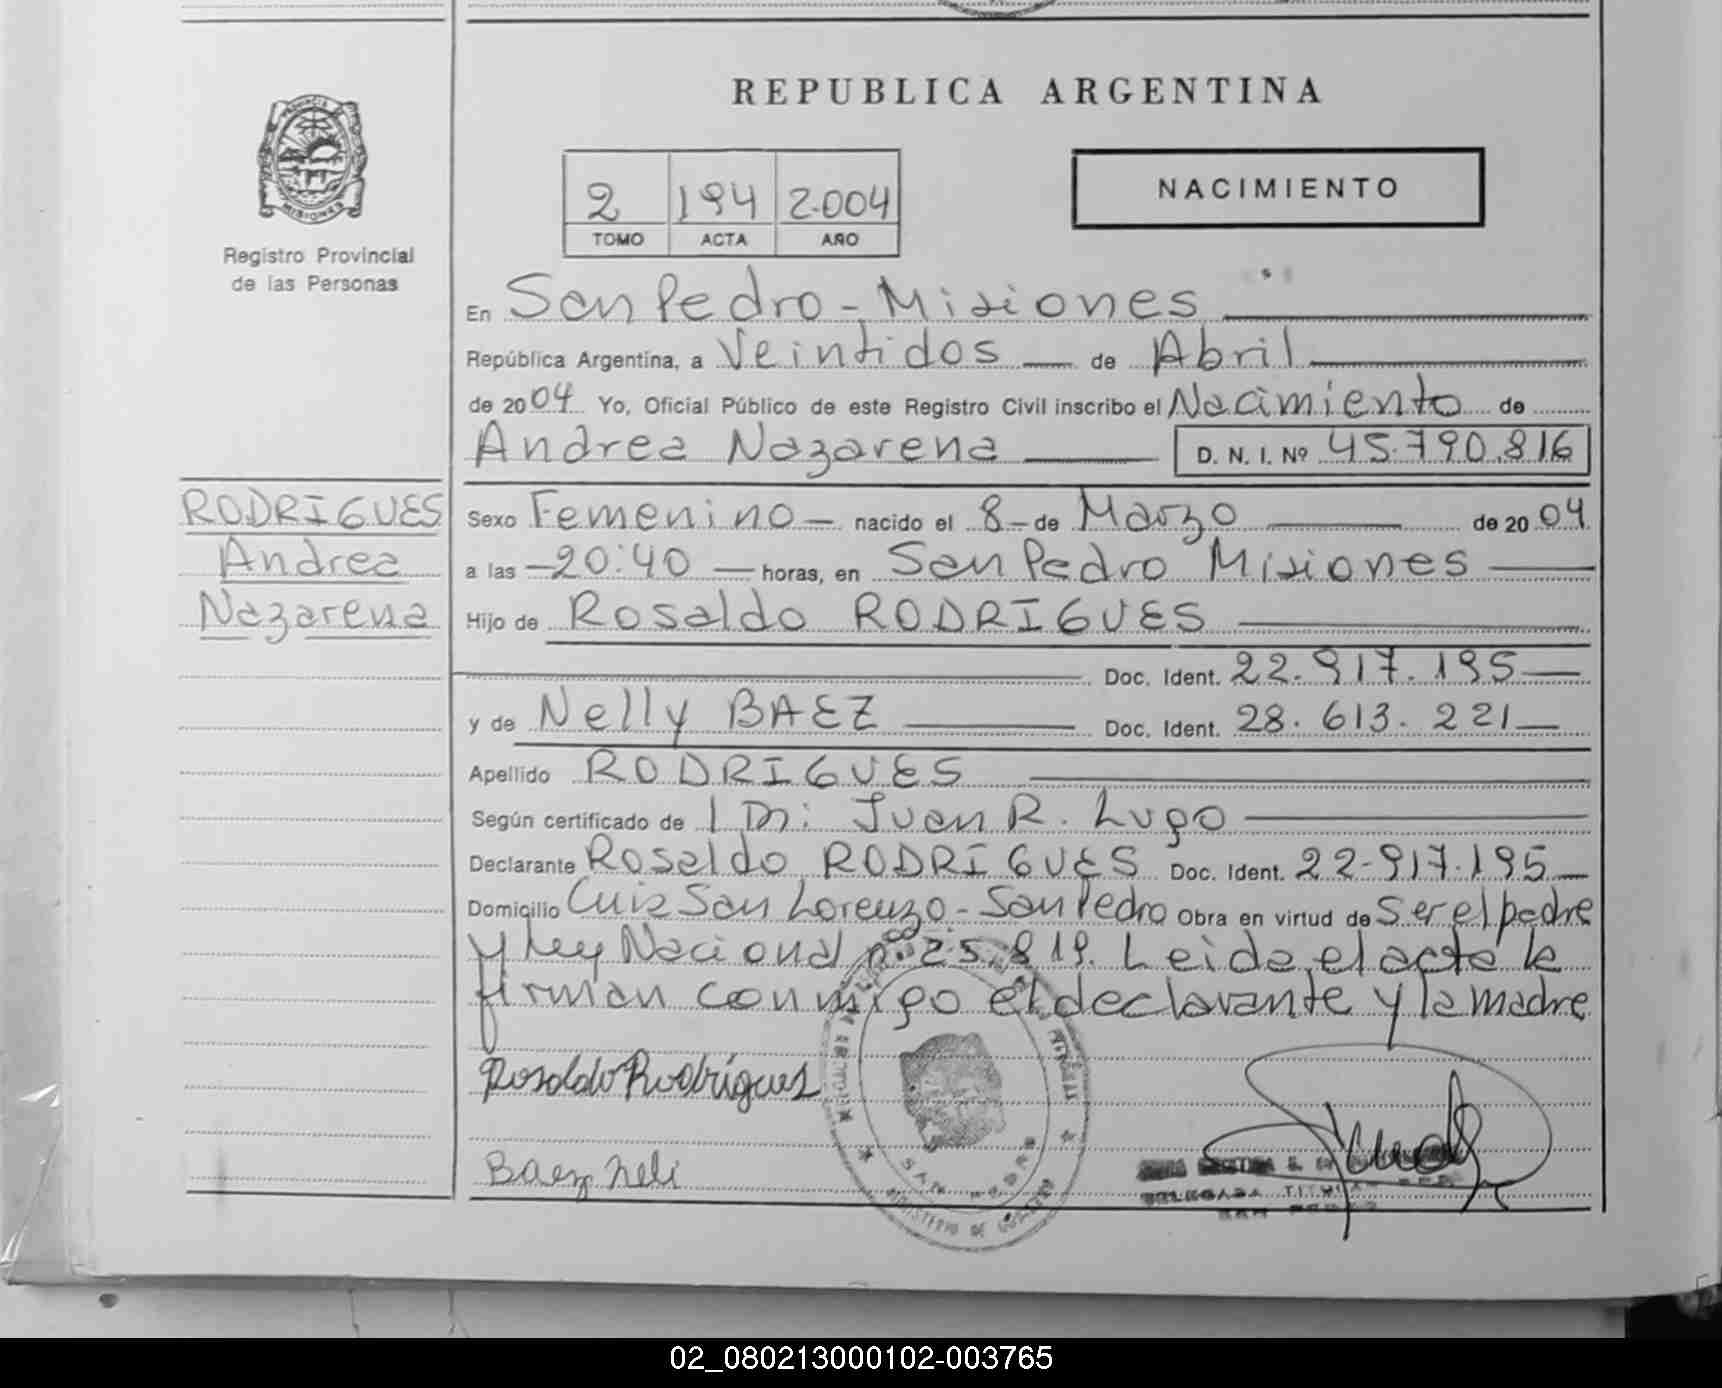 REPUBLICA ARGENTINA
PROVINCIA DE
MISIONES
Registro Provincial
de las Personas
2 194 2.004
TOMO ACTA AÑO
NACIMIENTO
En San Pedro - Misiones
República Argentina, a Veintidos de Abril
de 2004 Yo, Oficial Público de este Registro Civil inscribo el Nacimiento de
Andrea Nazarena D. N. I. Nº 45.790.816
RODRIGUES
Andrea
Nazarena
Sexo Femenino nacido el 8 de Marzo de 2004
a las 20:40 horas, en San Pedro Misiones
Hijo de Rosaldo RODRIGUES
Doc. Ident. 22.917.195
y de Nelly BAEZ Doc. Ident. 28.613.221
Apellido RODRIGUES
Según certificado de Dr: Juan R. Lugo
Declarante Rosaldo RODRIGUES Doc. Ident. 22-917.195
Domicilio San Lorenzo - San Pedro Obra en virtud de Ser el padre
y ley Nacional nº 25.819. Leida el acta la
firman conmigo el declarante y la madre
Rosaldo Rodrígues
Baez Neli
SAN PEDRO
MINISTERIO DE GOBIERNO
DELEGADA TITULAR
SAN PEDRO
02_080213000102-003765